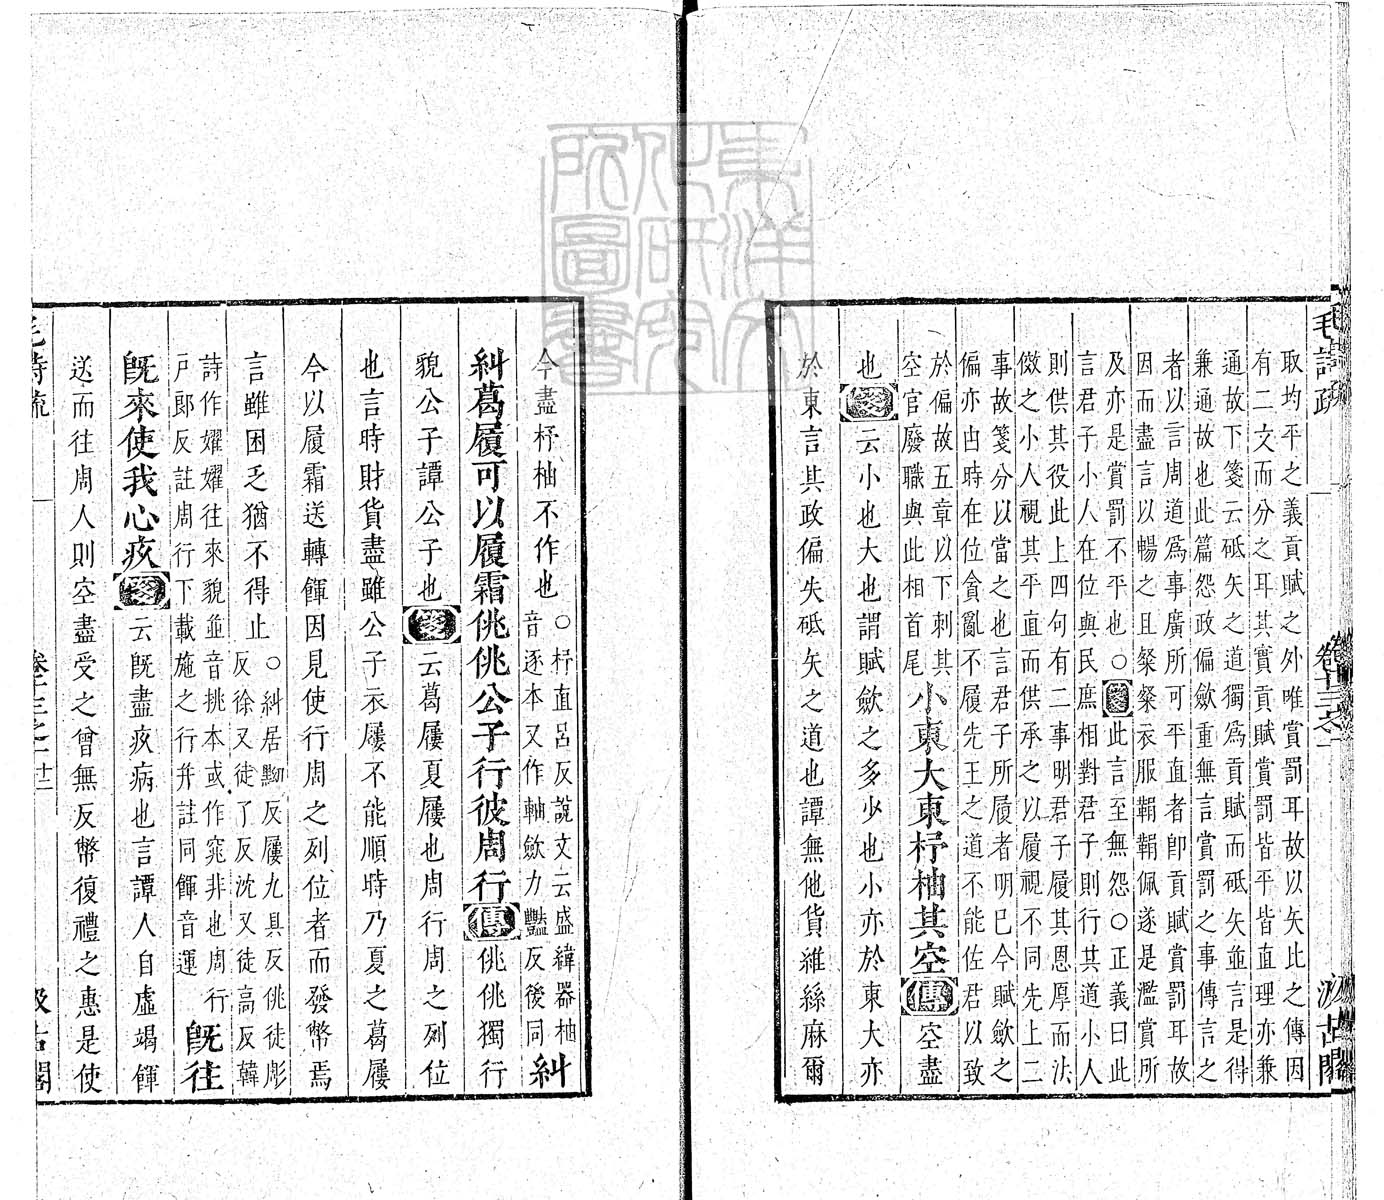 毛詩疏 卷十三之一 汲古閣
取均平之義貢賦之外唯賞罰耳故以矢比之傳因
有二文而分之耳其實貢賦賞罰皆平皆直理亦兼
通故下箋云砥矢之道獨爲貢賦而砥矢並言是得
兼通故也此篇怨政偏斂重無言賞罰之事傳言之
者以言周道爲事廣所可平直者卽貢賦賞罰耳故
因而盡言以暢之且粲粲衣服鞙鞙佩遂是濫賞所
及亦是賞罰不平也○箋此言至無怨○正義曰此
言君子小人在位與民庶相對君子則行其道小人
則供其役此上四句有二事明君子履其恩厚而法
傚之小人視其平直而供承之以履視不同先上二
事故箋分以當之也言君子所履者明巳今賦斂之
偏亦由時在位貪亂不履先王之道不能佐君以致
於偏故五章以下刺其
空官廢職與此相首尾
小東大東杼柚其空傳空盡
也箋云小也大也謂賦斂之多少也小亦於東大亦
於東言其政偏失砥矢之道也譚無他貨維絲麻爾
今盡杼柚不作也
○杼直呂反說文云盛緯器柚
音逐本又作軸斂力豔反後同
糾
糾葛屨可以履霜佻佻公子行彼周行傳佻佻獨行
貌公子譚公子也箋云葛屨夏屨也周行周之列位
也言時財貨盡雖公子衣屨不能順時乃夏之葛屨
今以履霜送轉餫因見使行周之列位者而發幣焉
言雖困乏猶不得止
○糾居黝反屨九具反佻徒彫
反徐又徒了反沈又徒高反韓
詩作嬥嬥往來貌並音挑本或作窕非也周行
戸郞反註周行下載施之行并註同餫音運
旣往
旣來使我心疚箋云旣盡疚病也言譚人自虛竭餫
送而往周人則空盡受之曾無反幣復禮之惠是使
毛詩疏 卷十三之一 廿二 汲古閣
東洋文
化研究
所圖書